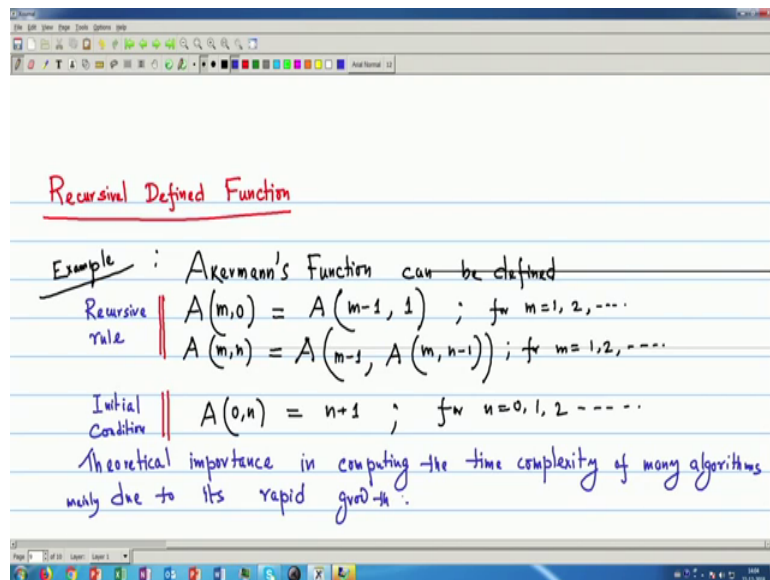 File Edit View Page Tools Options Help
Arial Normal 12
Recursivel Defined Function
Example : Akermann's Function can be defined
Recursive rule
A(m,0) = A(m-1, 1) ; for m=1, 2, ----
A(m,n) = A(m-1, A(m, n-1)) ; for m=1,2, ----
Initial Condition
A(0,n) = n+1 ; for n=0, 1, 2 -----
Theoretical importance in computing the time complexity of many algorithms
mainly due to its rapid growth.
Page 9 of 10 Layer: Layer 1